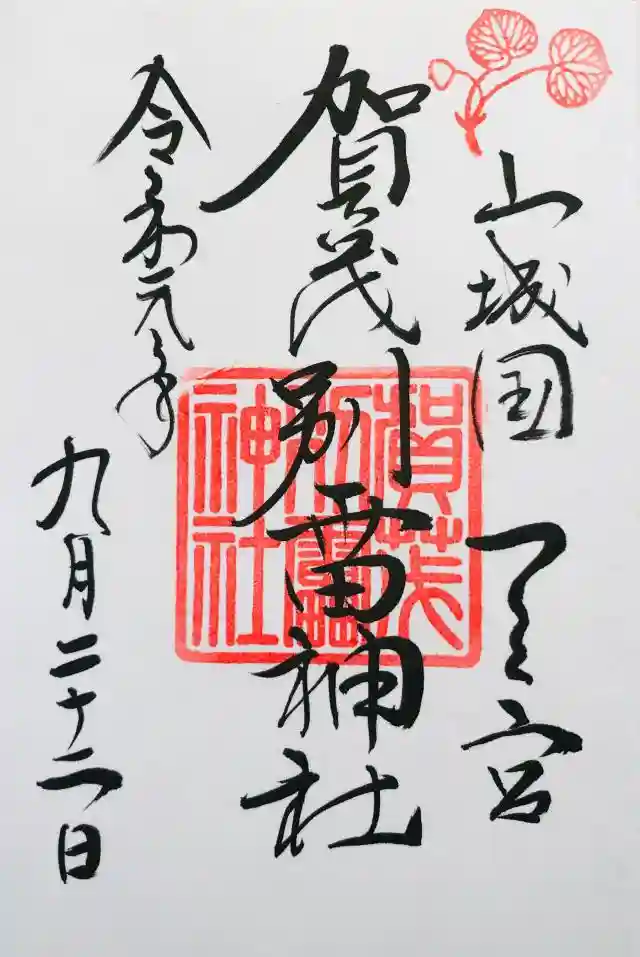 山城国一之宮
賀茂別雷神社
賀茂
別雷
神社
令和元年
九月二十二日